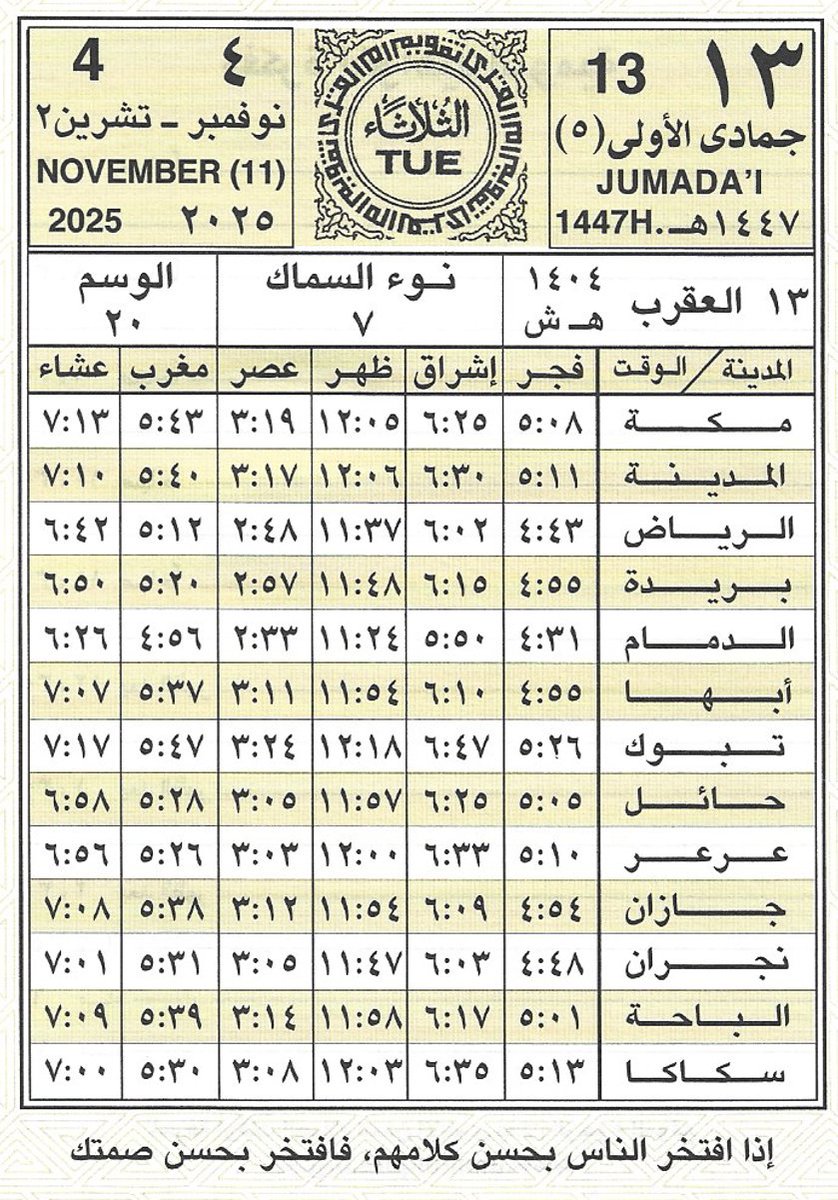 ١٣ 13
جمادى الأولى (٥)
JUMADA'I
1447H. ١٤٤٧هـ
تقويم أم القرى تقويم أم القرى
الثلاثاء
TUE
4 ٤
نوفمبر ـ تشرين٢
NOVEMBER (11)
2025 ٢٠٢٥
١٣ العقرب ١٤٠٤ هـ ش
نوء السماك ٧
الوسم ٢٠
المدينة / الوقت فجر إشراق ظهر عصر مغرب عشاء
مكة ٥:٠٨ ٦:٢٥ ١٢:٠٥ ٣:١٩ ٥:٤٣ ٧:١٣
المدينة ٥:١١ ٦:٣٠ ١٢:٠٦ ٣:١٧ ٥:٤٠ ٧:١٠
الرياض ٤:٤٣ ٦:٠٢ ١١:٣٧ ٢:٤٨ ٥:١٢ ٦:٤٢
بريدة ٤:٥٥ ٦:١٥ ١١:٤٨ ٢:٥٧ ٥:٢٠ ٦:٥٠
الدمام ٤:٣١ ٥:٥٠ ١١:٢٤ ٢:٣٣ ٤:٥٦ ٦:٢٦
أبها ٤:٥٥ ٦:١٠ ١١:٥٤ ٣:١١ ٥:٣٧ ٧:٠٧
تبوك ٥:٢٦ ٦:٤٧ ١٢:١٨ ٣:٢٤ ٥:٤٧ ٧:١٧
حائل ٥:٠٥ ٦:٢٥ ١١:٥٧ ٣:٠٥ ٥:٢٨ ٦:٥٨
عرعر ٥:١٠ ٦:٣٣ ١٢:٠٠ ٣:٠٣ ٥:٢٦ ٦:٥٦
جازان ٤:٥٤ ٦:٠٩ ١١:٥٤ ٣:١٢ ٥:٣٨ ٧:٠٨
نجران ٤:٤٨ ٦:٠٣ ١١:٤٧ ٣:٠٥ ٥:٣١ ٧:٠١
الباحة ٥:٠١ ٦:١٧ ١١:٥٨ ٣:١٤ ٥:٣٩ ٧:٠٩
سكاكا ٥:١٣ ٦:٣٥ ١٢:٠٣ ٣:٠٨ ٥:٣٠ ٧:٠٠
إذا افتخر الناس بحسن كلامهم، فافتخر بحسن صمتك